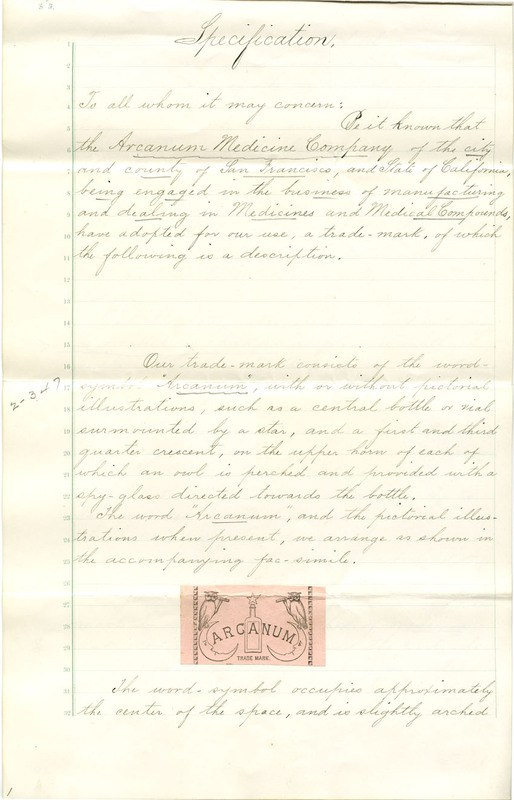 Specification.
To all whom it may concern:
Be it known that
the Arcanum Medicine Company of the city
and county of San Francisco, and State of California,
being engaged in the business of manufacturing
and dealing in Medicines and Medical Compounds,
have adopted for our use, a trade-mark, of which
the following is a description.
Our trade-mark consists of the word-
symbol "Arcanum", with or without pictorial
illustrations, such as a central bottle or vial
surmounted by a star, and a first and third
quarter crescent, on the upper horn of each of
which an owl is perched and provided with a
spy-glass directed towards the bottle.
The word "Arcanum", and the pictorial illus-
trations when present, we arrange as shown in
the accompanying fac-simile.
ARCANUM
TRADE MARK.
The word-symbol occupies approximately
the center of the space, and is slightly arched
2-3-47
1
2
3
4
5
6
7
8
9
10
11
12
13
14
15
16
17
18
19
20
21
22
23
24
25
26
27
28
29
30
31
32
1